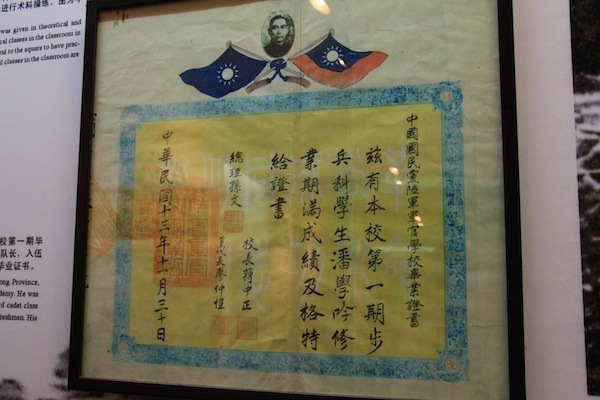 进行术科操练。图为
was given in theoretical and
cal classes in the classroom in
ent to the square to have prac-
l classes in the classroom are
中國國民黨陸軍軍官學校畢業證書
茲有本校第一期步
兵科學生潘學吟修
業期滿成績及格特
給證書
總理孫文
校長蔣中正
黨代表廖仲愷
中華民國十三年十一月三十日
校第一期毕
队长，入伍
毕业证书。
ong Province,
demy. He was
rd cadet class
freshmen. His